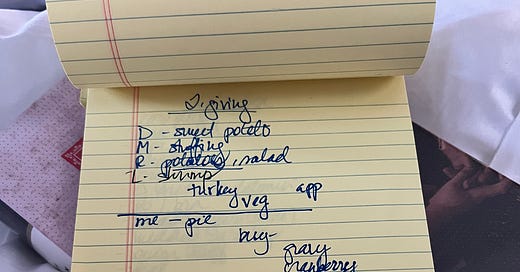 T.giving
D - sweet potato
M - stuffing
R - potatoes, salad
L - shrimp
turkey app
veg
me - pie
buy -
gravy
cranberries